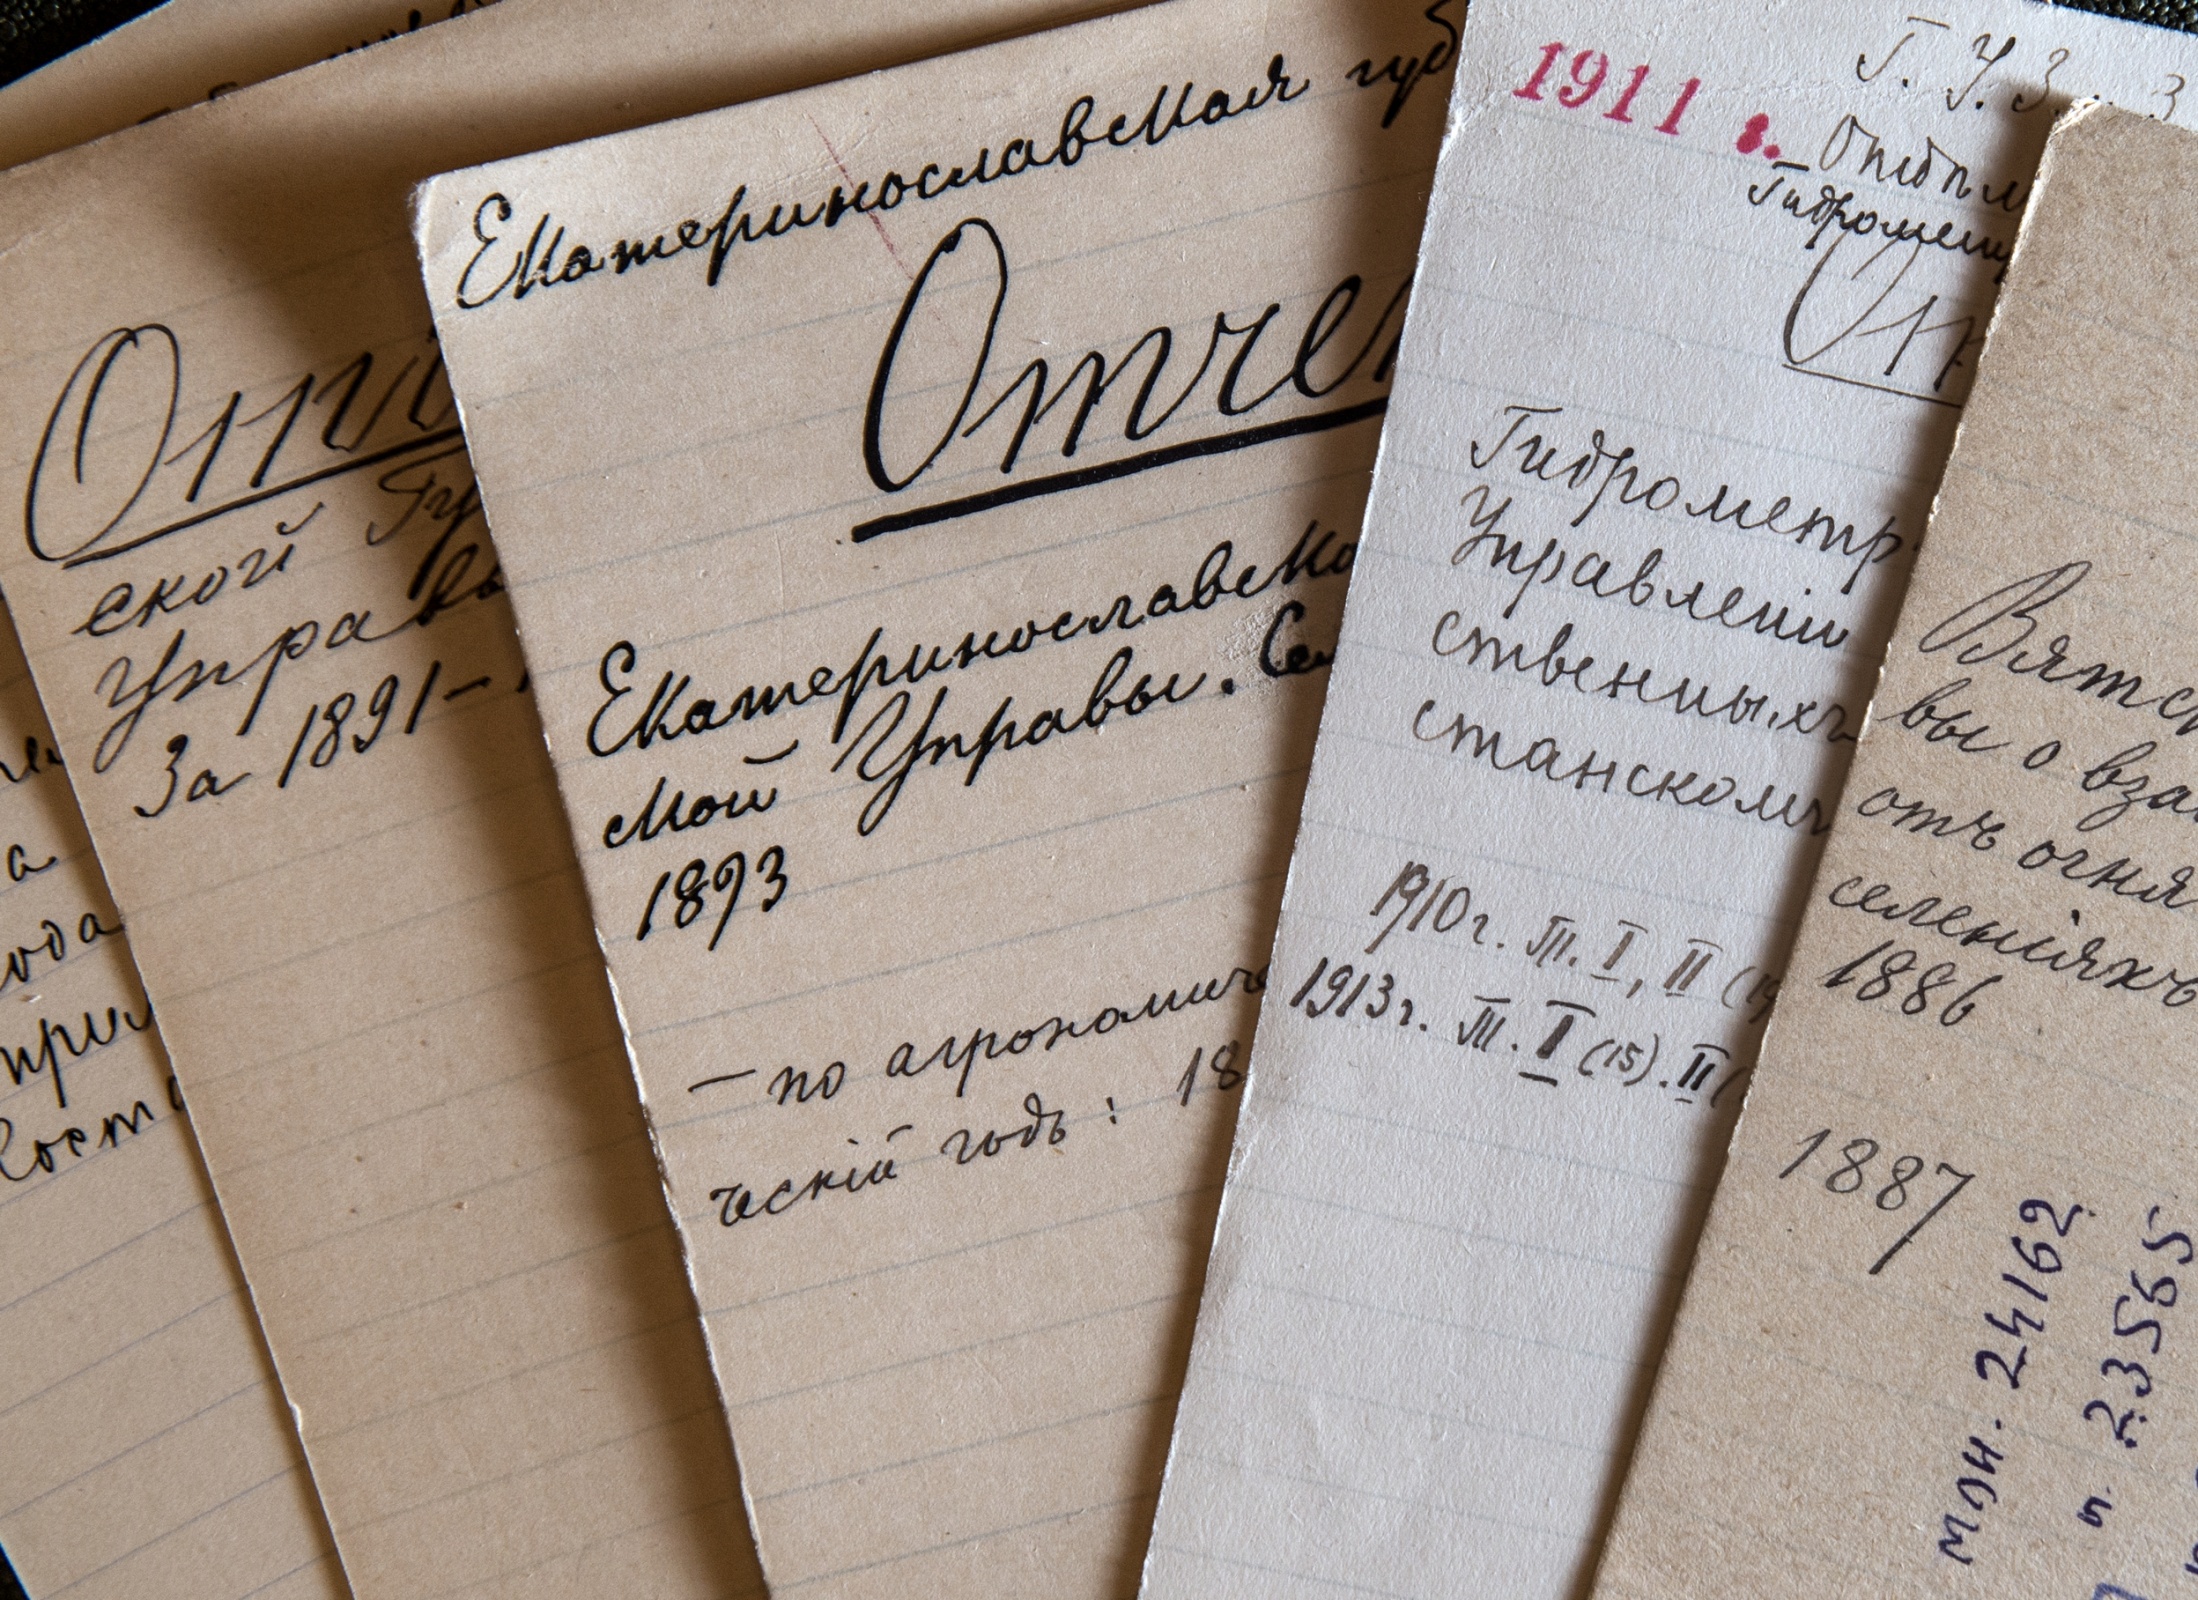 а
ода
прил
Отч
ской Гу
Управы
За 1891–
Екатеринославская губ
Отчет
Екатеринославско
ской Управы. Сел
1893
– по агрономиче
ческій годъ: 18
1911 г.
Г. У. З. . З
Отдѣл
Гидрометр
От
Гидрометр
Управленію
ственныхъ
станскомъ
1910 г. Т. I, II (19
1913 г. Т. I (15). II (
Вятск
вы о вза
отъ огня
селеніяхъ
1886
1887
мэн. 24162
п. 23565